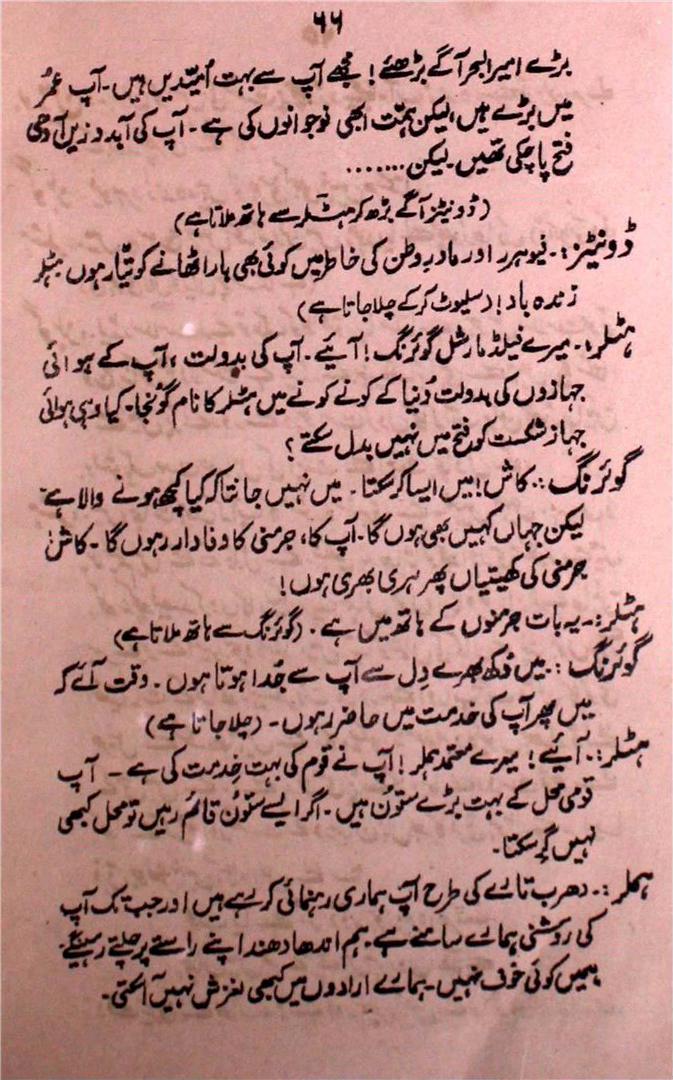 ۶۶
بڑے امیر البحر آگے بڑھئے! مجھے آپ سے بہت اُمیدیں ہیں۔ آپ عمر
میں بڑے ہیں، لیکن ہمت ابھی نوجوانوں کی ہے۔ آپ کی آبدوزیں آدھی
فتح پا چکی تھیں۔ لیکن.......
(ڈونیٹز آگے بڑھ کر ہٹلر سے ہاتھ ملاتا ہے)
ڈونیٹز:۔ فیوہرر اور مادرِ وطن کی خاطر میں کوئی بھی بار اٹھانے کو تیّار ہوں ہٹلر
زندہ باد! (سلیوٹ کر کے چلا جاتا ہے)
ہٹلر:۔ میرے فیلڈ مارشل گوئرنگ! آئیے۔ آپ کی بدولت، آپ کے ہوائی
جہازوں کی بدولت دُنیا کے کونے کونے میں ہٹلر کا نام گونجا۔ کیا وہی ہوائی
جہاز شکست کو فتح میں نہیں بدل سکتے؟
گوئرنگ:۔ کاش! میں ایسا کر سکتا۔ میں نہیں جانتا کہ کیا کچھ ہونے والا ہے۔
لیکن جہاں کہیں بھی ہوں گا۔ آپ کا، جرمنی کا وفادار رہوں گا۔ کاش
جرمنی کی کھیتیاں پھر ہری بھری ہوں!
ہٹلر:۔ یہ بات جرمنوں کے ہاتھ میں ہے۔ (گوئرنگ سے ہاتھ ملاتا ہے)
گوئرنگ:۔ میں دُکھ بھرے دِل سے آپ سے جُدا ہوتا ہوں۔ وقت آئے کہ
میں پھر آپ کی خدمت میں حاضر رہوں۔ (چلا جاتا ہے)
ہٹلر:۔ آئیے! میرے معتمد ہملر! آپ نے قوم کی بہت خِدمت کی ہے۔ آپ
قومی محل کے بہت بڑے ستون ہیں۔ اگر ایسے ستون قائم رہیں تو محل کبھی
نہیں گِر سکتا۔
ہملر:۔ دھرب تارے کی طرح آپ ہماری رہنمائی کر رہے ہیں اور جب تک آپ
کی روشنی ہمارے سامنے ہے۔ ہم اندھا دھند اپنے راستے پر چلتے رہینگے۔
ہمیں کوئی خوف نہیں۔ ہمارے ارادوں میں کبھی لغزش نہیں آسکتی۔